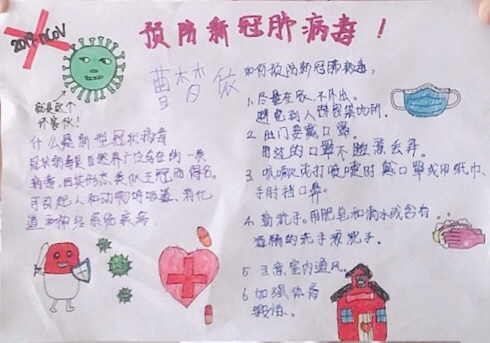 2019-nCoV
预防新冠肺病毒！
就是这个
坏家伙！
什么是新型冠状病毒
冠状病毒是自然界广泛存在的一类
病毒，因其形态类似王冠而得名。
可引起人和动物呼吸道、消化
道和神经系统疾病
如何预防新冠肺病毒：
1.尽量在家，不外出。
避免到人群聚集的所。
2.出门要戴口罩。
用过的口罩不随意丢弃。
3.咳嗽或打喷嚏时戴口罩或用纸巾、
手肘捂口鼻。
4.勤洗手。用肥皂和清水或含有
酒精的洗手液洗手。
5.注意室内通风。
6.加强体育
锻炼。